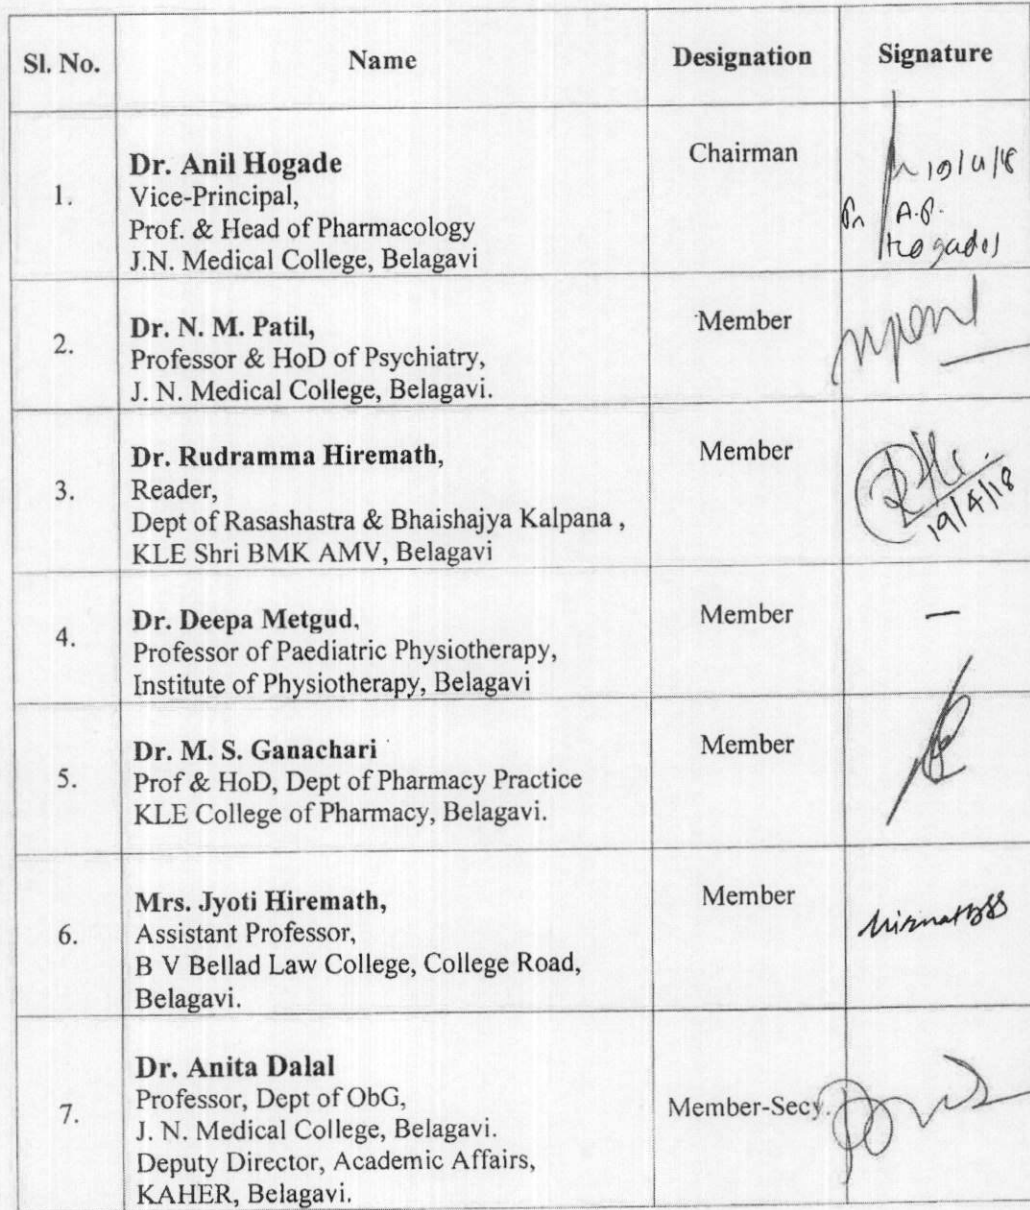 Sl. No. Name Designation Signature
1.
Dr. Anil Hogade
Vice-Principal,
Prof. & Head of Pharmacology
J.N. Medical College, Belagavi
Chairman
A.P.
2.
Dr. N. M. Patil,
Professor & HoD of Psychiatry,
J. N. Medical College, Belagavi.
Member
3.
Dr. Rudramma Hiremath,
Reader,
Dept of Rasashastra & Bhaishajya Kalpana ,
KLE Shri BMK AMV, Belagavi
Member
19/4/18
4.
Dr. Deepa Metgud,
Professor of Paediatric Physiotherapy,
Institute of Physiotherapy, Belagavi
Member
—
5.
Dr. M. S. Ganachari
Prof & HoD, Dept of Pharmacy Practice
KLE College of Pharmacy, Belagavi.
Member
6.
Mrs. Jyoti Hiremath,
Assistant Professor,
B V Bellad Law College, College Road,
Belagavi.
Member
7.
Dr. Anita Dalal
Professor, Dept of ObG,
J. N. Medical College, Belagavi.
Deputy Director, Academic Affairs,
KAHER, Belagavi.
Member-Secy.